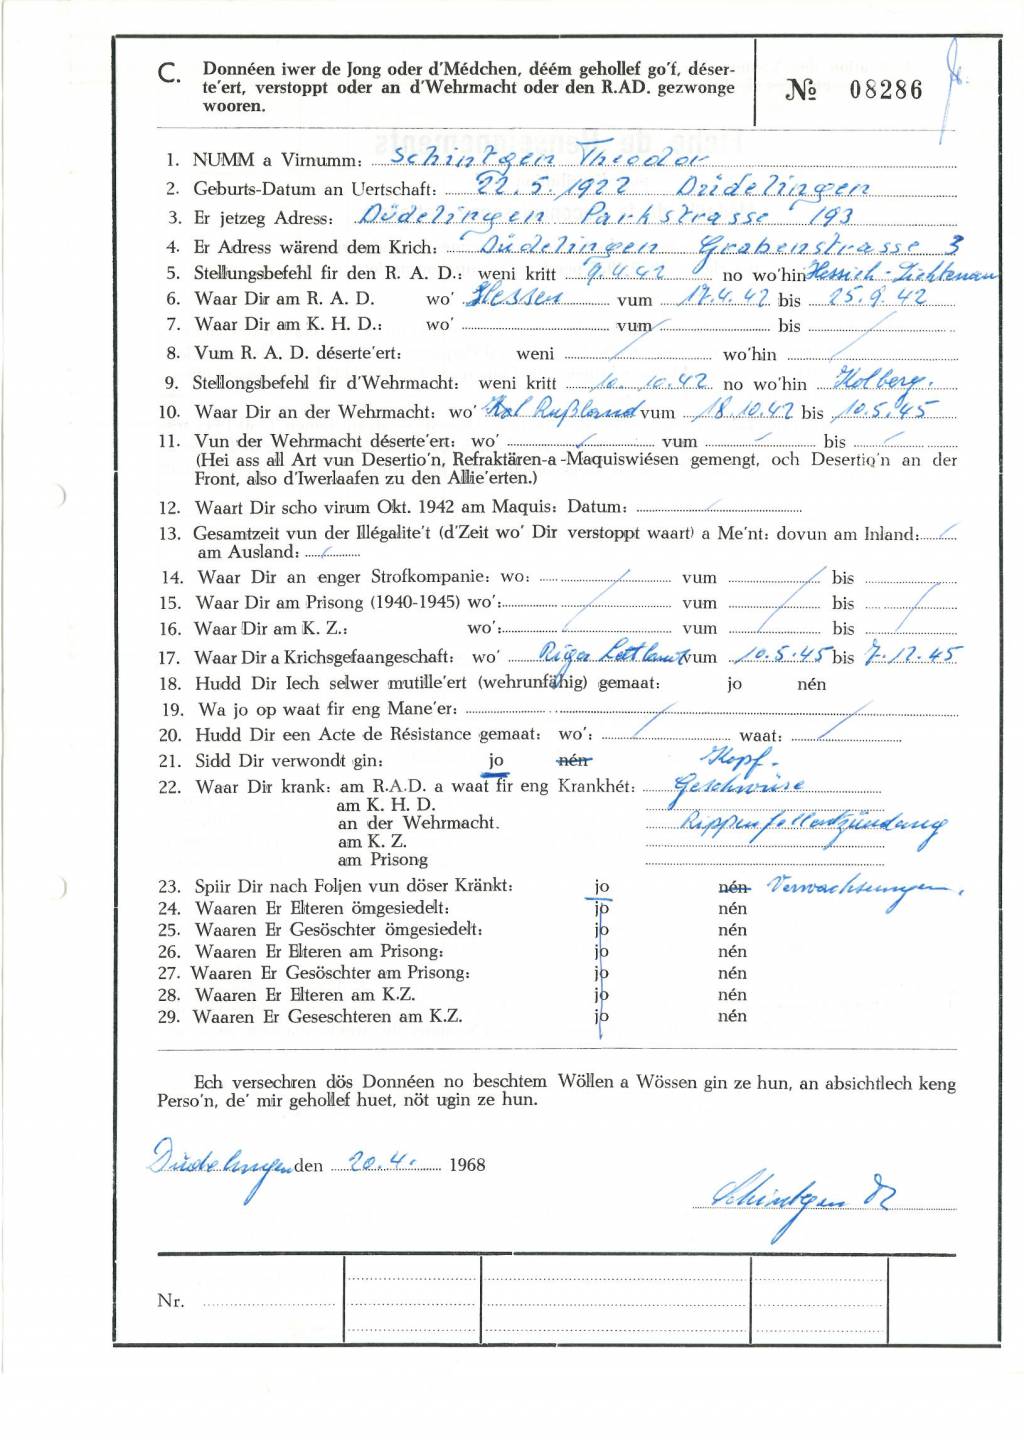 C. Donnéen iwer de Jong oder d'Médchen, déém gehollef go'f, déser-
te'ert, verstoppt oder an d'Wehrmacht oder den R.AD. gezwonge
wooren.
№ 08286
1. NUMM a Virnumm: Schintgen Theodor
2. Geburts-Datum an Uertschaft: 22.5.1922 Düdelingen
3. Er jetzeg Adress: Düdelingen Parkstrasse 193
4. Er Adress wärend dem Krich: Düdelingen Grabenstrasse 3
5. Stellungsbefehl fir den R. A. D.: weni kritt 9.4.42 no wo'hin Hessich-Lichtenau
6. Waar Dir am R. A. D. wo' Hessen vum 17.4.42 bis 25.9.42
7. Waar Dir am K. H. D.: wo' vum bis
8. Vum R. A. D. déserte'ert: weni wo'hin
9. Stellongsbefehl fir d'Wehrmacht: weni kritt 10.10.42 no wo'hin Kolberg.
10. Waar Dir an der Wehrmacht: wo' Kol Rußland vum 18.10.42 bis 10.5.45
11. Vun der Wehrmacht déserte'ert: wo' vum bis
(Hei ass all Art vun Desertio'n, Refraktären-a-Maquiswiésen gemengt, och Desertio'n an der
Front, also d'Iwerlaafen zu den Allie'erten.)
12. Waart Dir scho virum Okt. 1942 am Maquis: Datum:
13. Gesamtzeit vun der Illégalite't (d'Zeit wo' Dir verstoppt waart) a Me'nt: dovun am Inland:
am Ausland:
14. Waar Dir an enger Strofkompanie: wo: vum bis
15. Waar Dir am Prisong (1940-1945) wo': vum bis
16. Waar Dir am K. Z.: wo': vum bis
17. Waar Dir a Krichsgefaangeschaft: wo' Riga Lettland vum 10.5.45 bis 7.12.45
18. Hudd Dir Iech selwer mutille'ert (wehrunfähig) gemaat: jo nén
19. Wa jo op waat fir eng Mane'er:
20. Hudd Dir een Acte de Résistance gemaat: wo': waat:
21. Sidd Dir verwondt gin: jo nén Kopf-
22. Waar Dir krank: am R.A.D. a waat fir eng Krankhét: Geschwüre
am K. H. D.
an der Wehrmacht. Rippenfellentzündung
am K. Z.
am Prisong
23. Spiir Dir nach Foljen vun döser Kränkt: jo nén Verwachsungen.
24. Waaren Er Elteren ömgesiedelt: jo nén
25. Waaren Er Gesöschter ömgesiedelt: jo nén
26. Waaren Er Elteren am Prisong: jo nén
27. Waaren Er Gesöschter am Prisong: jo nén
28. Waaren Er Elteren am K.Z. jo nén
29. Waaren Er Geseschteren am K.Z. jo nén
Ech versechren dös Donnéen no beschtem Wöllen a Wössen gin ze hun, an absichtlech keng
Perso'n, de' mir gehollef huet, nöt ugin ze hun.
Düdelingen den 20.4. 1968
Schintgen
Nr.